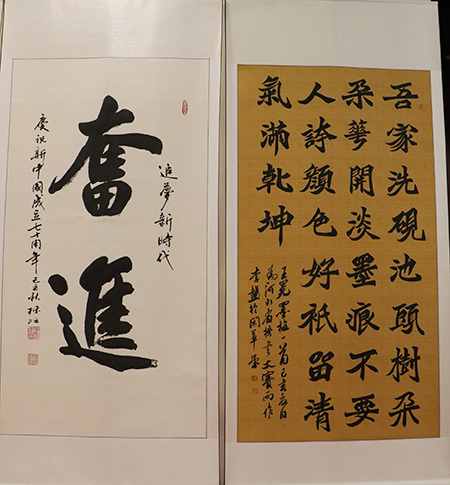 吾家洗硯池頭樹朵
朵華開淡墨痕不要
人誇顏色好祇留清
氣滿乾坤
王冕墨梅一首己亥夏日
為河北省楷書大賽而作
追夢新時代
奮進
慶祝新中國成立七十周年己亥秋